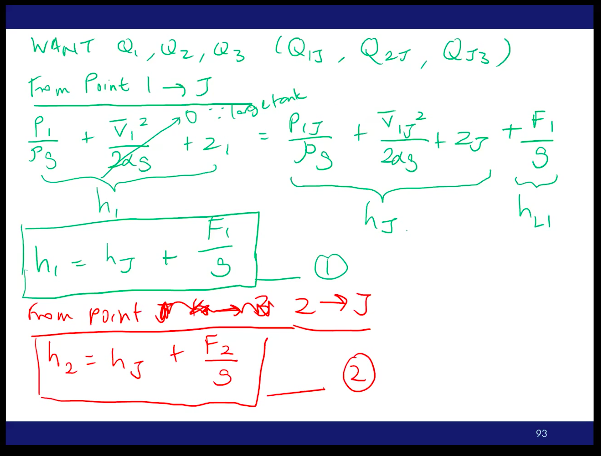 WANT Q1, Q2, Q3 (Q1J, Q2J, QJ3)
From Point 1 → J
P1/ρg + V̄1²/2αg + z1 = P1J/ρg + V̄1J²/2αg + zJ + F1/g
0 ∵ Large tank
h1 hJ hL1
h1 = hJ + F1/g ___ ①
From point 2 → J
h2 = hJ + F2/g ___ ②
93